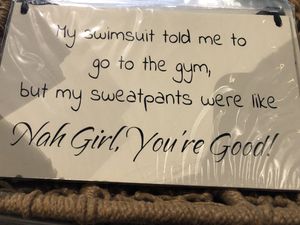 My swimsuit told me to
go to the gym,
but my sweatpants were like
Nah Girl, You're Good!